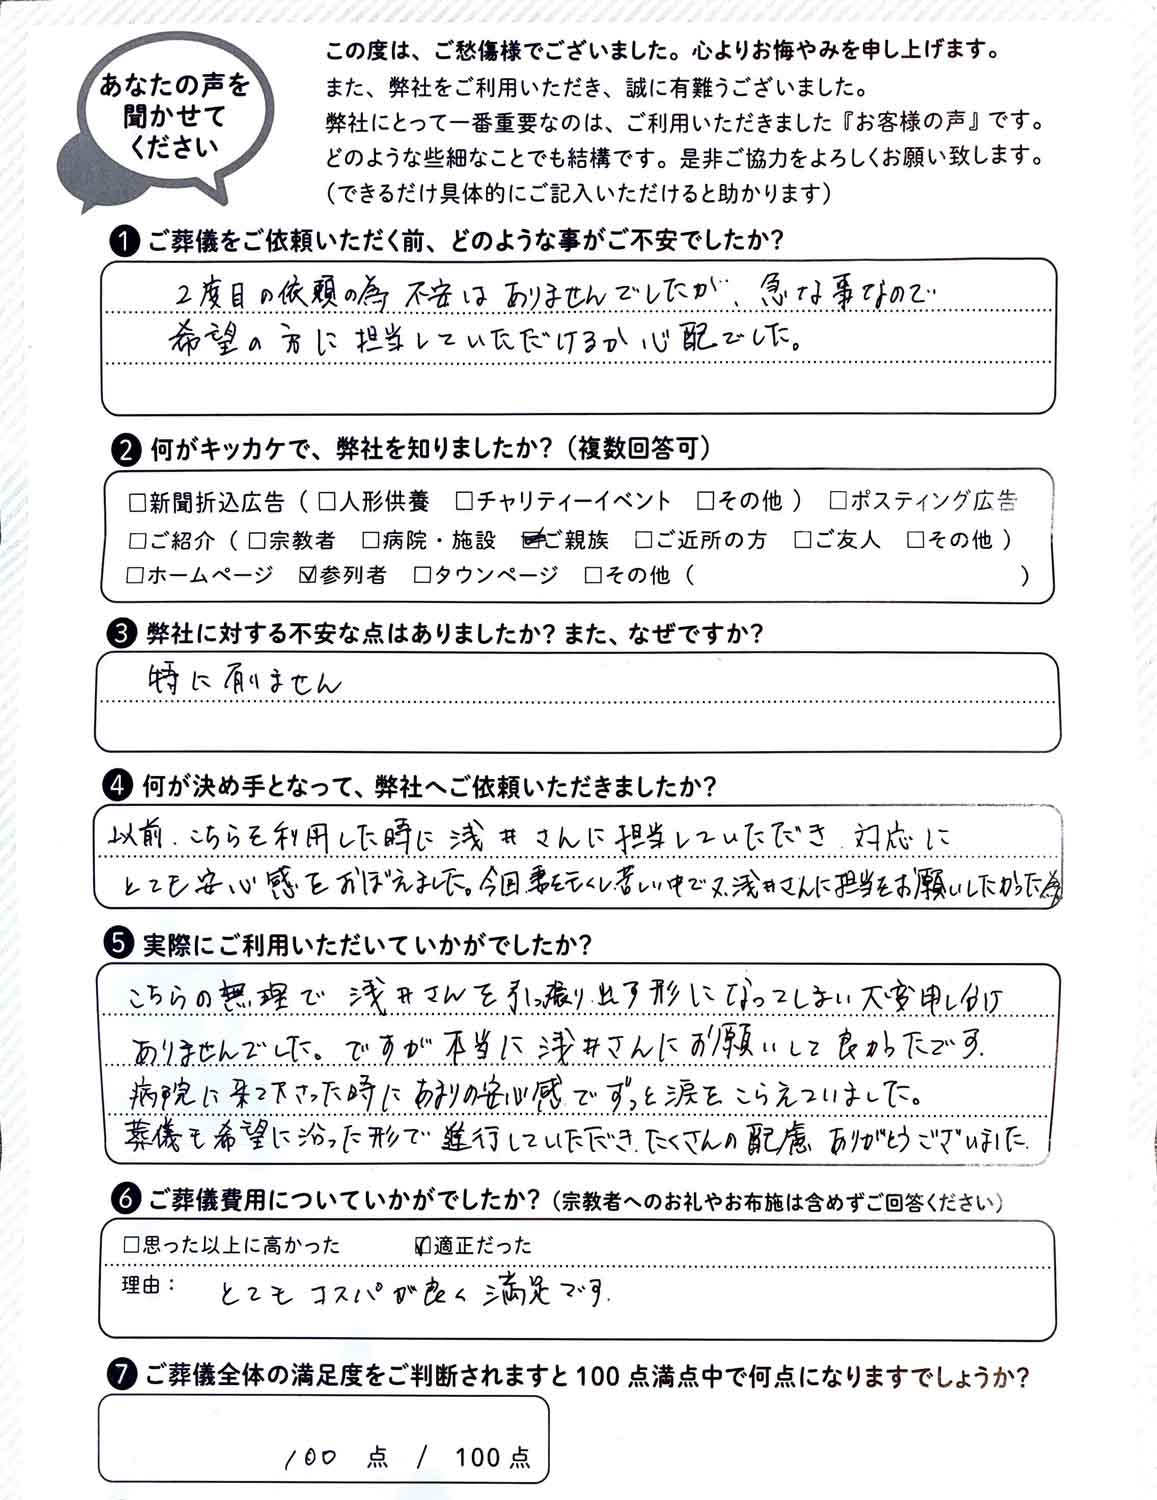 あなたの声を
聞かせて
ください
この度は、ご愁傷様でございました。心よりお悔やみを申し上げます。
また、弊社をご利用いただき、誠に有難うございました。
弊社にとって一番重要なのは、ご利用いただきました『お客様の声』です。
どのような些細なことでも結構です。是非ご協力をよろしくお願い致します。
(できるだけ具体的にご記入いただけると助かります)
❶ ご葬儀をご依頼いただく前、どのような事がご不安でしたか?
2度目の依頼の為 不安は ありませんでしたが、急な事なので
希望の方に担当していただけるか心配でした。
❷ 何がキッカケで、弊社を知りましたか?(複数回答可)
□新聞折込広告 ( □人形供養 □チャリティーイベント □その他 ) □ポスティング広告
□ご紹介 ( □宗教者 □病院・施設 ☑ご親族 □ご近所の方 □ご友人 □その他 )
□ホームページ ☑参列者 □タウンページ □その他 ( )
❸ 弊社に対する不安な点はありましたか? また、なぜですか?
特に有りません
❹ 何が決め手となって、弊社へご依頼いただきましたか?
以前、こちらを利用した時に 浅井さんに担当していただき、対応に
とても安心感をおぼえました。今回妻を亡くし苦しい中で又、浅井さんに担当をお願いしたかった為
❺ 実際にご利用いただいていかがでしたか?
こちらの無理で 浅井さんを引っ張り出す形になってしまい 大変申し分け
ありませんでした。ですが本当に浅井さんにお願いして良かったです。
病院に来て下さった時にあまりの安心感でずっと涙をこらえていました。
葬儀も希望に沿った形で 進行していただき、たくさんの配慮 ありがとうございました。
❻ ご葬儀費用についていかがでしたか?(宗教者へのお礼やお布施は含めずご回答ください)
□思った以上に高かった ☑適正だった
理由: とてもコスパが良く満足です。
❼ ご葬儀全体の満足度をご判断されますと100点満点中で何点になりますでしょうか?
100 点 / 100点